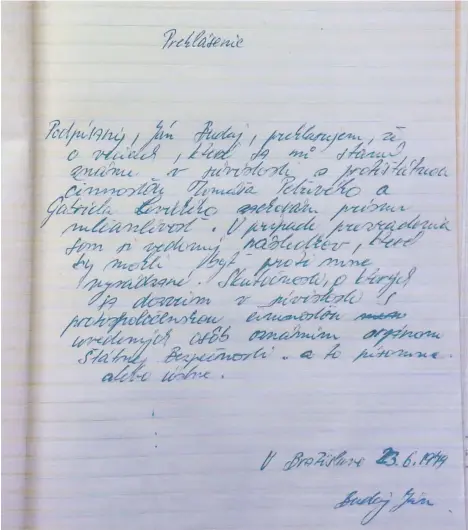 Prehlásenie
Podpísaný, Ján Budaj, prehlasujem, že
o veciach, ktoré sa mi stanú
známe v súvislosti s protištátnou
činnosťou Tomáša Petrivého a
Gabriela Levického zachovám prísnu
mlčanlivosť. V prípade prezradenia
som si vedomý následkov, ktoré
by mohli byť proti mne
vyvodzané. Skutočnosti, o ktorých
sa dozviem v súvislosti s
protispoločenskou činnosťou
uvedených osôb oznámim orgánom
Štátnej Bezpečnosti. a to písomne
alebo ústne.
V Bratislave 23.6.1979
Budaj Ján